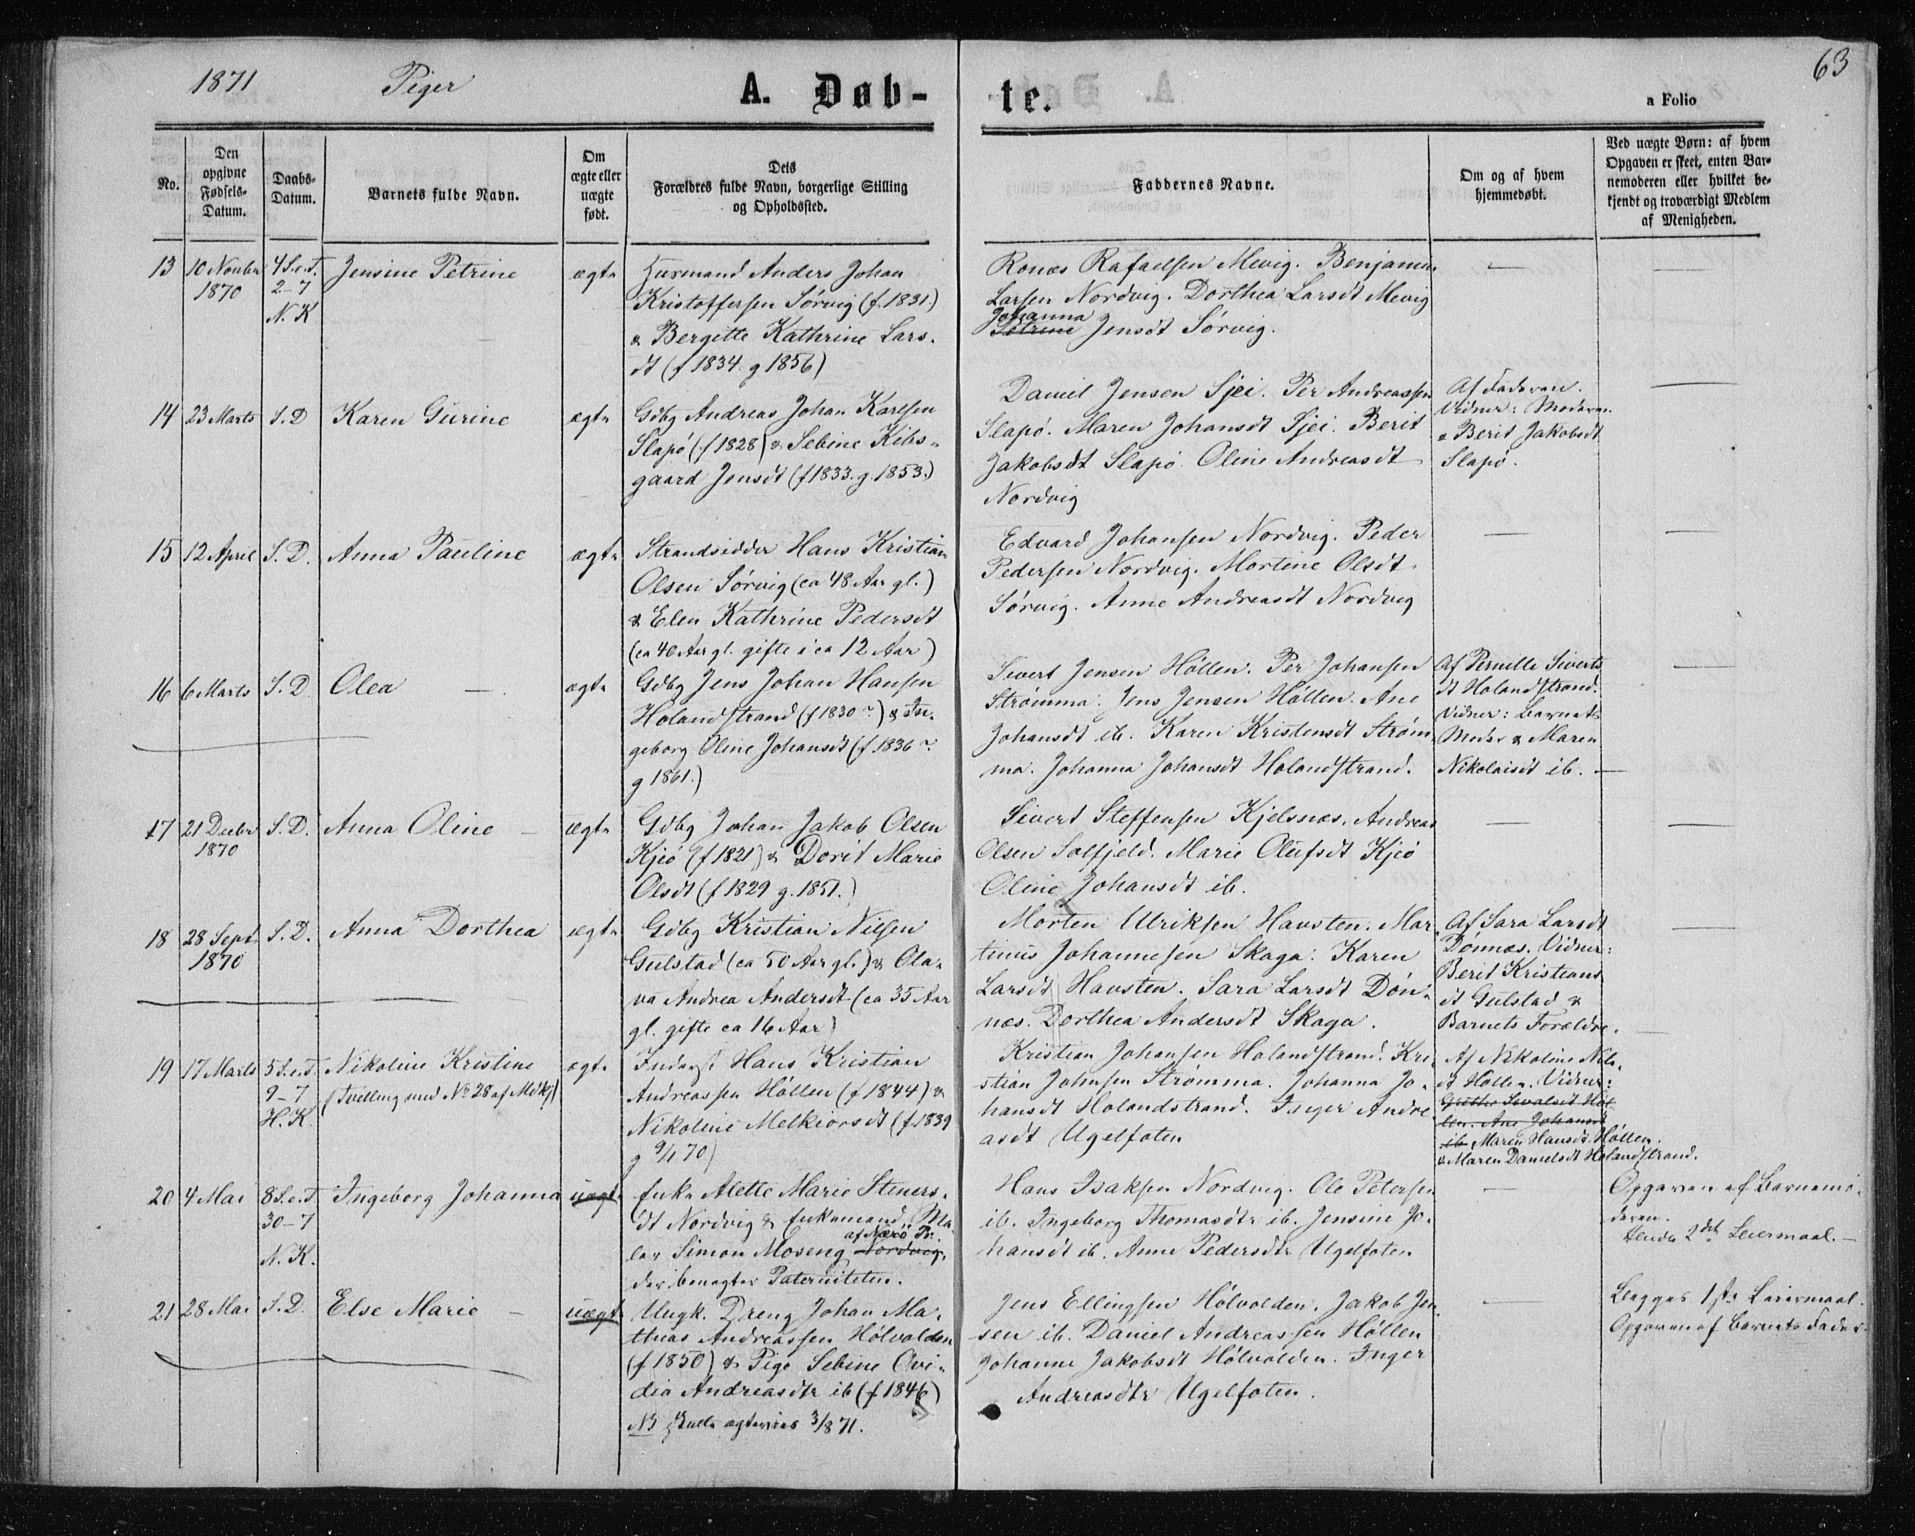 1871 Piger A. Døb-te. 63
a Folio
No.
Den opgivne Fødsels-Datum.
Daabs-Datum.
Barnets fulde Navn.
Om ægte eller uægte født.
Dets Forældres fulde Navn, borgerlige Stilling og Opholdssted.
Faddernes Navne.
Om og af hvem hjemmedøbt.
Ved uægte Børn: af hvem Opgaven er skeet, enten Barnemoderen eller hvilket bekjendt og troværdigt Medlem af Menigheden.
13 10 Novbr 1870
4 S.e.T. 2-7 N.K
Jensine Petrine
ægte
Husmand Anders Johan
Kristoffersen Sørvig (f.1831)
& Bergitte Kathrine Lars-
dt (f 1834. g 1856)
Ronæs Rafaelsen Mevig. Benjamin
Larsen Nordvig. Dorthea Larsdt Mevig
Johanna
Petrine Jensdt Sørvig.
—
—
14 23 Marts S.D
Karen Gurine
ægte
Gdbg Andreas Johan Karlsen
Slapø (f 1828) & Sebine Kibs-
gaard Jensdt (f 1833. g. 1853.)
Daniel Jensen Sjei. Per Andreassen
Slapø. Maren Johansdt Sjei. Berit
Jakobsdt Slapø. Oline Andreasdt
Nordvig
Af Faderen.
Vidner: Moderen
& Berit Jakobsdt
Slapø.
—
15 12 April S.D.
Anna Pauline
ægte
Strandsidder Hans Kristian
Olsen Sørvig (ca 48 Aar gl.)
& Elen Kathrine Pedersdt
(ca 40 Aar gl. gifte i ca 12 Aar)
Edvard Johansen Nordvig. Peder
Pedersen Nordvig. Martine Olsdt
Sørvig. Anne Andreasdt Nordvig
—
—
16 6 Marts S.D
Olea —
ægte
Gdbg Jens Johan Hansen
Holandstrand (f 1830) & In-
geborg Oline Johansdt (f. 1836
g 1861.)
Sivert Jensen Høllen. Per Johansen
Strømma. Jens Jensen Høllen. Ane
Johansdt ib. Karen Kristensdt Strøm-
ma. Johanna Johansdt Holandstrand.
Af Pernille Siverts
dt Holandstrand.
Vidner: Barnets
Moder & Maren
Nikolaisdt ib. —
—
17 21 Decbr 1870 S.D.
Anna Oline —
ægte
Gdbg Johan Jakob Olsen
Kjeø (f 1821) & Dorit Marie
Olsdt (f 1829 g. 1851.)
Sivert Steffensen Kjelsnæs. Andreas
Olsen Solfjeld. Marie Olufsdt Kjeø
Oline Johansdt ib.
—
—
18 28 Sept. 1870 S.D.
Anna Dorthea
ægte
Gdbg Kristian Nilsen
Gulstad (ca 50 Aar gl.) & Ola-
va Andrea Andersdt (ca 35 Aar
gl. gifte ca 16 Aar)
Morten Ulriksen Havsten. Mar-
tinus Johannesen Skaga. Karen
Larsdt Havsten. Sara Larsdt Døn-
næs. Dorthea Andersdt Skaga.
Af Sara Larsdt
Dønnæs. Vidner:
Berit Kristians
dt Gulstad &
Barnets Forældre.
—
19 17 Marts
5 S.e.T. 9-7 H.K.
Nikoline Kristine
(Tvilling med No 28 af Mdkj)
ægte
Inderst Hans Kristian
Andreassen Høllen (f 1844) &
Nikoline Melkiorsdt (f 1839
g 9/1 70)
Kristian Johansen Holandstrand. Kri-
stian Johnsen Strømma. Johanna Jo-
hansdt Holandstrand. Inger Andre-
asdt Ugelfoten
Af Nikoline Nils-
dt Høllen. Vidner:
Grethe Sivalsdt Høl-
len. Ane Johansdt
ib. Maren Hansdt Høllen.
& Maren Danielsdt Holandstrand.
—
20 4 Mai
8 S.e.T. 30-7 N.K.
Ingeborg Johanna
uægte
Enke Alette Marie Steners-
dt Nordvig & Enkemand Ma-
af Nærø Pr.
ler Simon Moseng Nordvig,
der benægter Paterniteten.
Hans Isaksen Nordvig. Ole Petersen
ib. Ingeborg Thomasdtr ib. Jensine Jo-
hansdt ib. Anne Pedersdtr Ugelfoten
—
Opgaven af Barnemo-
deren.
Hendes 2det Leiermaal. —
21 28 Mai S.D.
Else Marie —
uægte
Ungk. Dreng Johan Ma-
thias Andreassen Hølvolden
(f 1850) & Pige Sebine Ovi-
dia Andreasdtr ib (f 1846)
NB ægteviet 3/8 71.
Jens Ellingsen Hølvolden. Jakob Jen-
sen ib. Daniel Andreassen Høllen
Johanne Jakobsdt Hølvolden. Inger
Andreasdtr Ugelfoten.
—
Begges 1ste Leiermaal.
Opgaven af Barnets Fader.